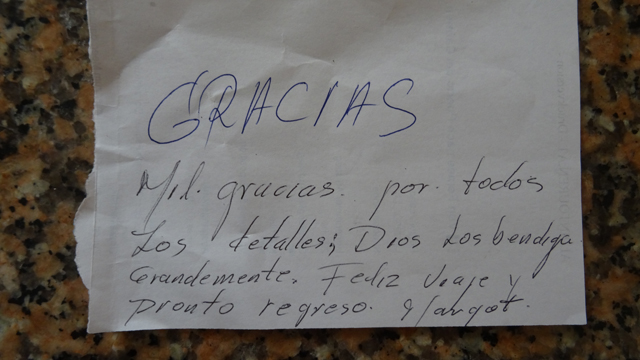 GRACIAS
Mil. gracias. por. todos
Los detalles; Dios Los bendiga.
Grandemente. Feliz viaje y
pronto regreso. Margot.